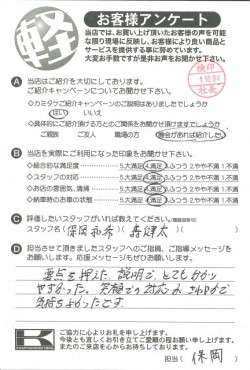 軽
お客様アンケート
当店では、お買い上げ頂いたお客様の声を可能
な限り現場に反映し、お客様により良い商品と
サービスを提供する事に努めています。
大変お手数ですが是非お声をお聞かせ下さい。
検印
社長
A 当店はご紹介を大切にしております。
ご紹介キャンペーンについてお聞かせ下さい。
◇カミタケご紹介キャンペーンのご説明はありましたでしょうか
はい いいえ
◇具体的にご紹介頂ける方とのご関係をお聞かせ頂けますでしょうか
ご親族 ご友人 職場の方 機会があれば紹介したい
B 当店を実際にご利用になった印象をお聞かせ下さい。
◇総合的な満足度 5.大満足 4.満足 3.ふつう 2.やや不満 1.不満
◇スタッフの対応 5.大満足 4.満足 3.ふつう 2.やや不満 1.不満
◇お店の雰囲気、清掃 5.大満足 4.満足 3.ふつう 2.やや不満 1.不満
◇納車時のお車の状態 5.大満足 4.満足 3.ふつう 2.やや不満 1.不満
C 評価したいスタッフがいれば教えてください。
スタッフ名( 保岡 )( 森 健太 )
D 担当させて頂きましたスタッフへのご指摘、ご指導メッセージを
お願いします。応援メッセージもぜひお願いします。
要点を押えた説明で、とても分かり
やすかった。笑顔での対応もさわやかで
気持ちよかったです。
K
ご協力に心よりお礼を申し上げます。
今後とも宜しくお引き立てご愛顧の程お願い申し上げます。
またのご来店を心からお待ちしております。
担当( 保岡 )